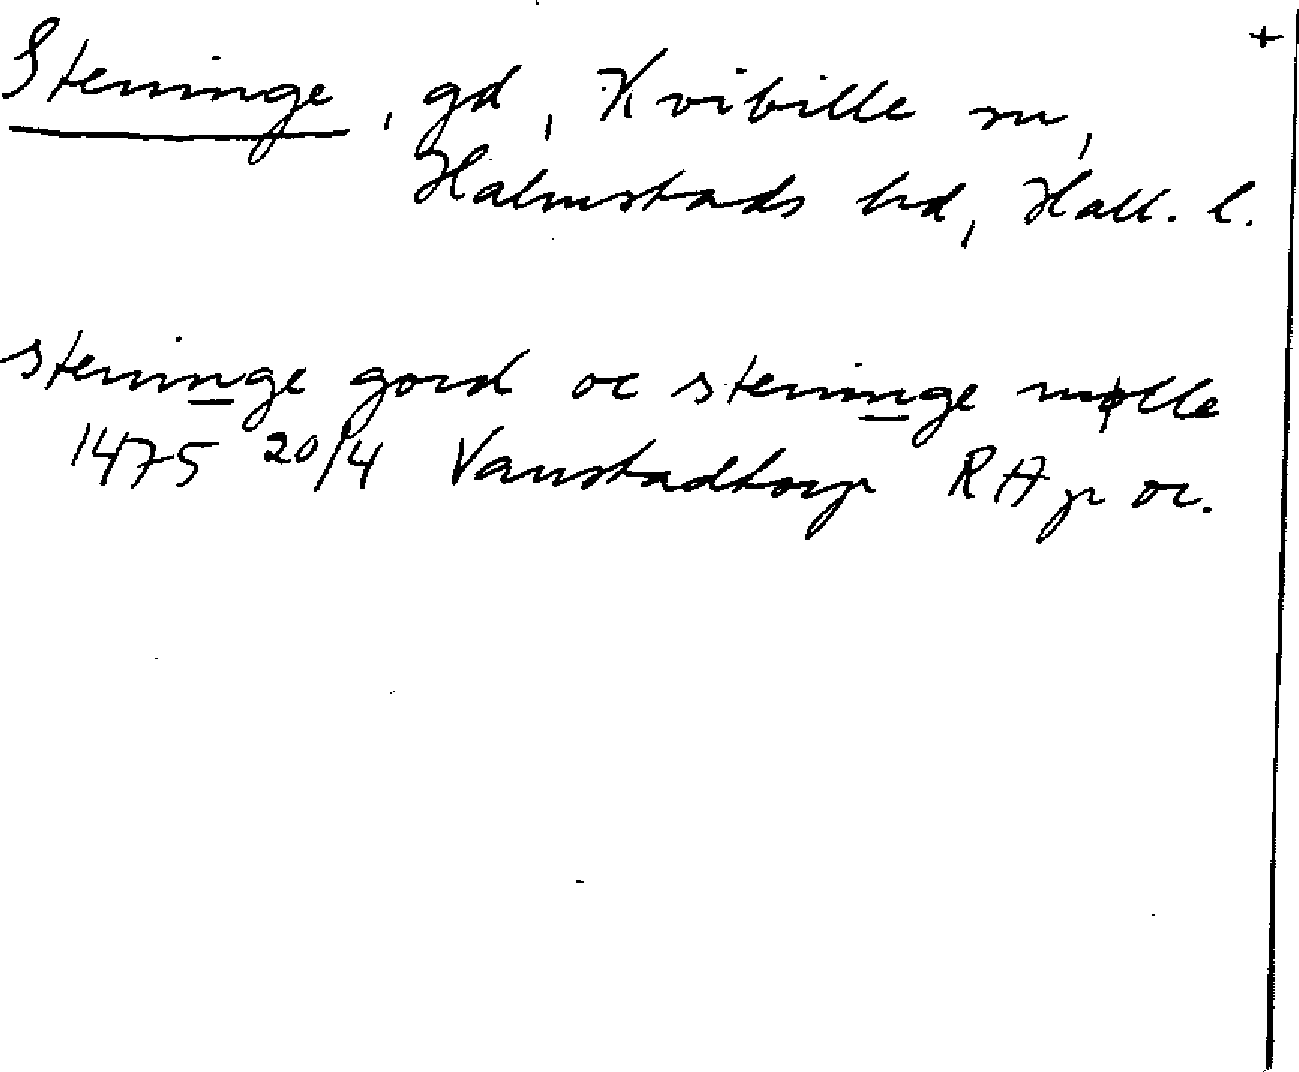 +
Steninge, gd, Kvibille sn,
Halmstads hd, Hall. l.
steninge gord oc steninge mølle
1475 20/4 Vanstadtorp RAp or.